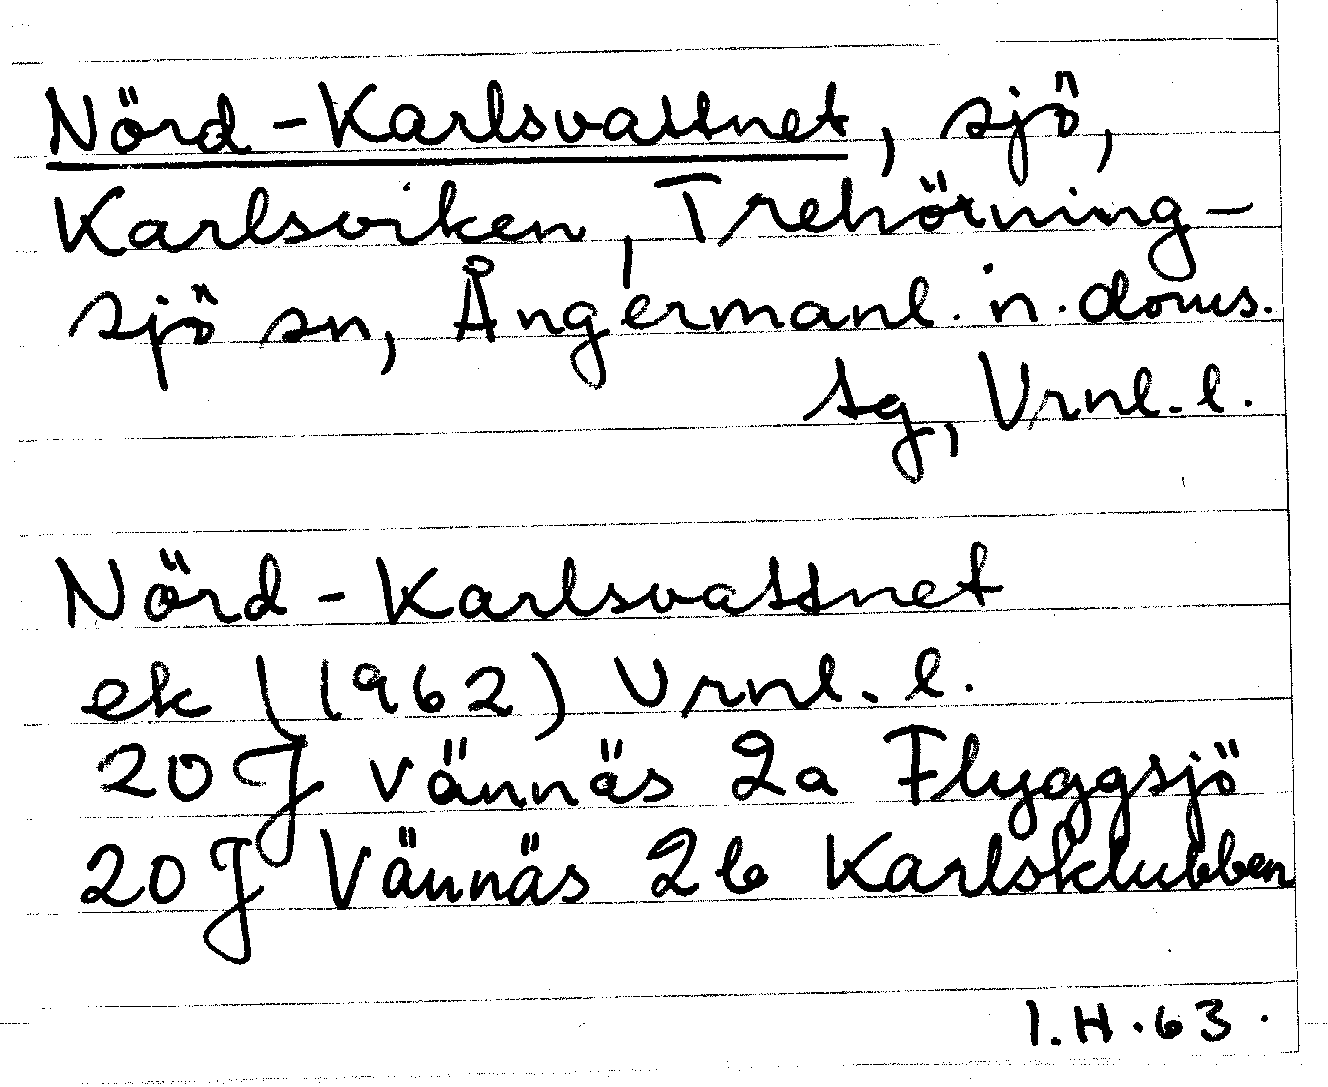 Nörd-Karlsvattnet, sjö,
Karlsviken, Trehörning-
sjö sn, Ångermanl. n. doms.
sg, Vrnl. l.
Nörd-Karlsvattnet
ek (1962) Vrnl. l.
20 J Vännäs 2a Flyggsjö
20 J Vännäs 2b Karlsklubben
I.H. 63.